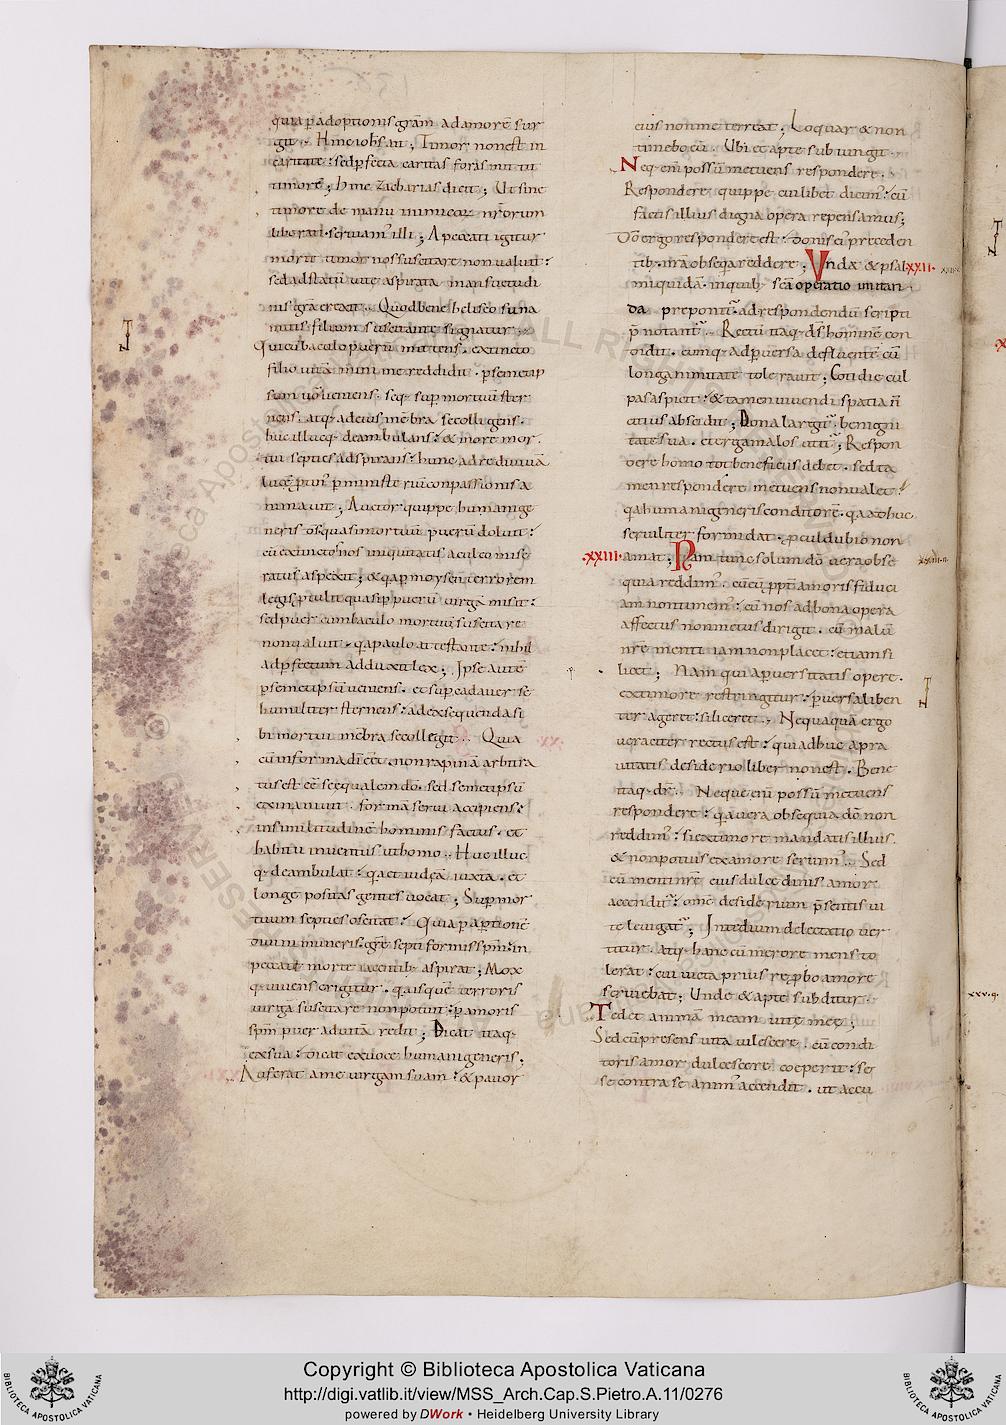 quia p adoptionis gram ad amore sur
git. Hinc iohs ait; Timor non est in
caritate: sed pfecta caritas foras mittit
timore; hinc Zacharias dicit; Ut sine
timore de manu inimicoꝝ nrorum
liberati seruiam illi; A peccati igitur
morte timor nos suscitare non ualuit:
sed ad statu uite aspirata mansuetudi
nis gra erexit. Quod bene heliseo suna
mitis filium suscitante signatur;
Qui cu baculo pueru mittens. extincto
filio uita minime reddidit. p semetip
sum uo ueniens. seq sup mortuu ster
nens. atq ad eius mebra se colligens.
huc illucq deambulans: & in ore mor
tui septies adspirans: hunc ad rediuiua
luce ptin p ministeriu conpassionis a
nimauit; Auctor quippe humani ge
neris ds quasi mortuu pueru doluit:
cu extinctos nos iniquitatis aculeo mise
ratus aspexit; & qa p moysen terrorem
legis ptulit quasi p pueru uirga misit:
sed puer cum baculo mortuu suscitare
non ualuit. qa paulo attestante: nihil
ad pfectum adduxit lex; Ipse aute
p semetipsu ueniens. et sup cadauer se
humiliter sternens: ad exsequenda si
bi mortui mebra se collegit. Quia
cu in forma di eet. non rapina arbitra
tus est ee se equalem do. sed semetipsu
exinaniuit. forma serui accipiens:
in similitudine hominis factus. et
habitu inuentus ut homo. Huc illuc
q deambulat: qa et iudea iuxta. et
longe positas gentes uocat; Sup mor
tuum septies oscitat: Quia p aptione
diuini muneris. gre septiformis spm in
peccati morte iacentib aspirat; Mox
q uiuens erigitur. qa is que terroris
uirga suscitare non potuit: p amoris
spm puer ad uita rediit; Dicat itaq
ex sua: dicat ex uoce humani generis;
Auferat a me uirgam suam: & pauor
eius non me terreat; Loquar & non
timebo eu. Ubi et apte subiungit.
Neq eni possu metuens respondere.
Respondere quippe cuilibet dicim: cu
factis illius digna opera repensamus;
Do ergo respondere est: donis ei preceden
tib. nra obsequia reddere; Unde & psal XXII.
mi quida. in quib sca operatio imitan
da preponit. ad respondendu scripti
p notant. Rectu itaq ds homine con
didit. eumq ad puersa defluente cu
longanimitate tolerauit; Cotidie cul
pas aspicit: & tamen uiuendi spatia n
citius abscidit; Dona largit. benigni
tate sua. et erga malos utit; Respon
dere homo tot beneficiis debet. sed ta
men respondere metuens non ualet:
qa humani generis conditore. qa adhuc
seruiliter formidat. pculdubio non
XXIII. amat; Nam tunc solum do uera obse
quia reddim: cu eu ppt amoris fiduci
am non timem: cu nos ad bona opera
affectus non metus dirigit. cu malu
nre menti iam non placet: etiam si
licet; Nam qui a puersitatis opere.
ex timore restringitur: puersa liben
ter ageret: si liceret. Nequaqua ergo
ueraciter rectus est: qui adhuc a pra
uitatis desiderio liber non est. Bene
itaq dr. Neque eni possu metuens
respondere: qa uera obsequia do non
reddim: si ex timore mandatis illius.
& non potius ex amore seruim. Sed
cu in mente nre eius dulcedinis amor
accendit: ome desiderium psentis ui
te leuigat; In tedium delectatio uer
titur. atq hanc cu merore mens to
lerat: cui uicta prius reprobo amore
seruiebat; Unde & apte subditur
Tedet anima meam uite mee;
Sed cu presens uita uilescere. cu condi
toris amor dulcescere coeperit: se
se contra se anim accendit. ut accu